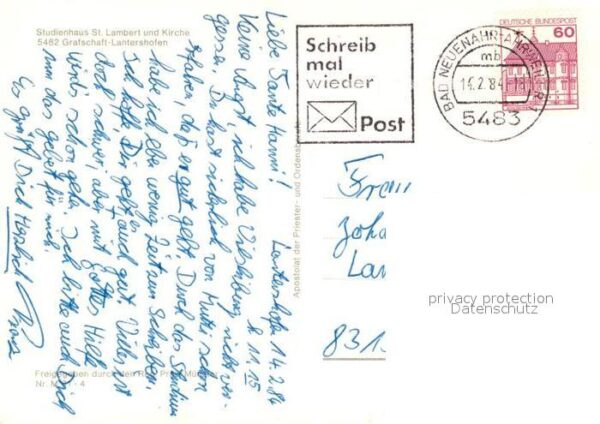 Studienhaus St. Lambert und Kirche
5482 Grafschaft-Lantershofen
Lantershofen 14.2.84
Liebe Tante Hanni!
Keine Angst, ich habe Dich nicht ver-
gessen. Du hast sicherlich von Mutti schon
gehört, daß es gut geht. Durch das Studium
habe ich sehr wenig Zeit zum Schreiben.
Ich hoffe, Dir geht es auch gut. Vieles ist
doch schwer, aber mit Gottes Hilfe
wird's schon gehen. Ich bitte auch Dich
um das Gebet für mich.
Es grüßt Dich herzlich
Freigegeben durch den
Nr.
4
Apostolat der Priester- und Ordensberufe
Schreib
mal
wieder
Post
BAD NEUENAHR-AHRWEILER 1
mb
14.2.84-18
5483
DEUTSCHE BUNDESPOST
60
Joha
Lan
831
privacy protection
Datenschutz